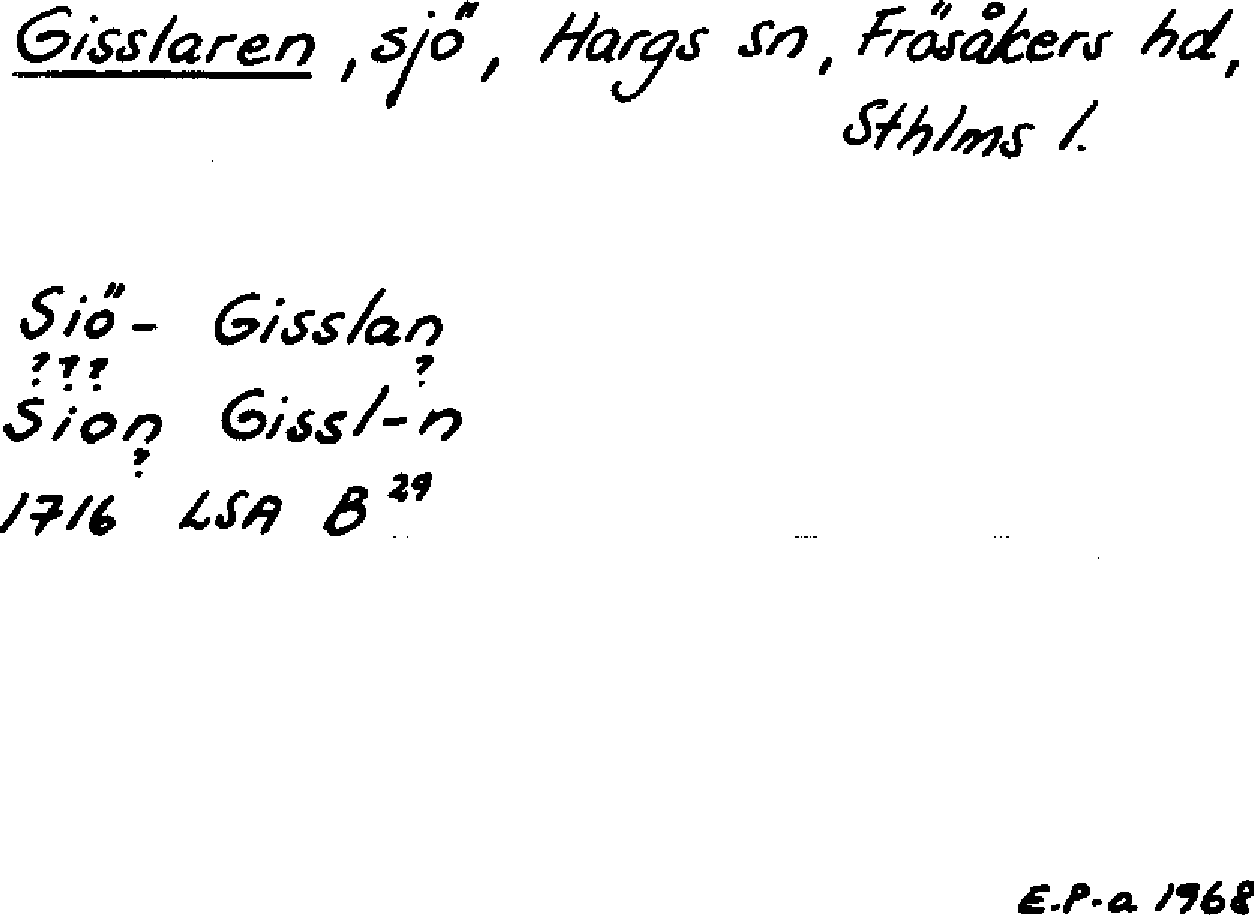 Gisslaren, sjö, Hargs sn, Frösåkers hd,
Sthlms l.
Siö- Gisslan
? ? ? ?
Sion Gissl-n
?
1716 LSA B 29
E.P-a 1968